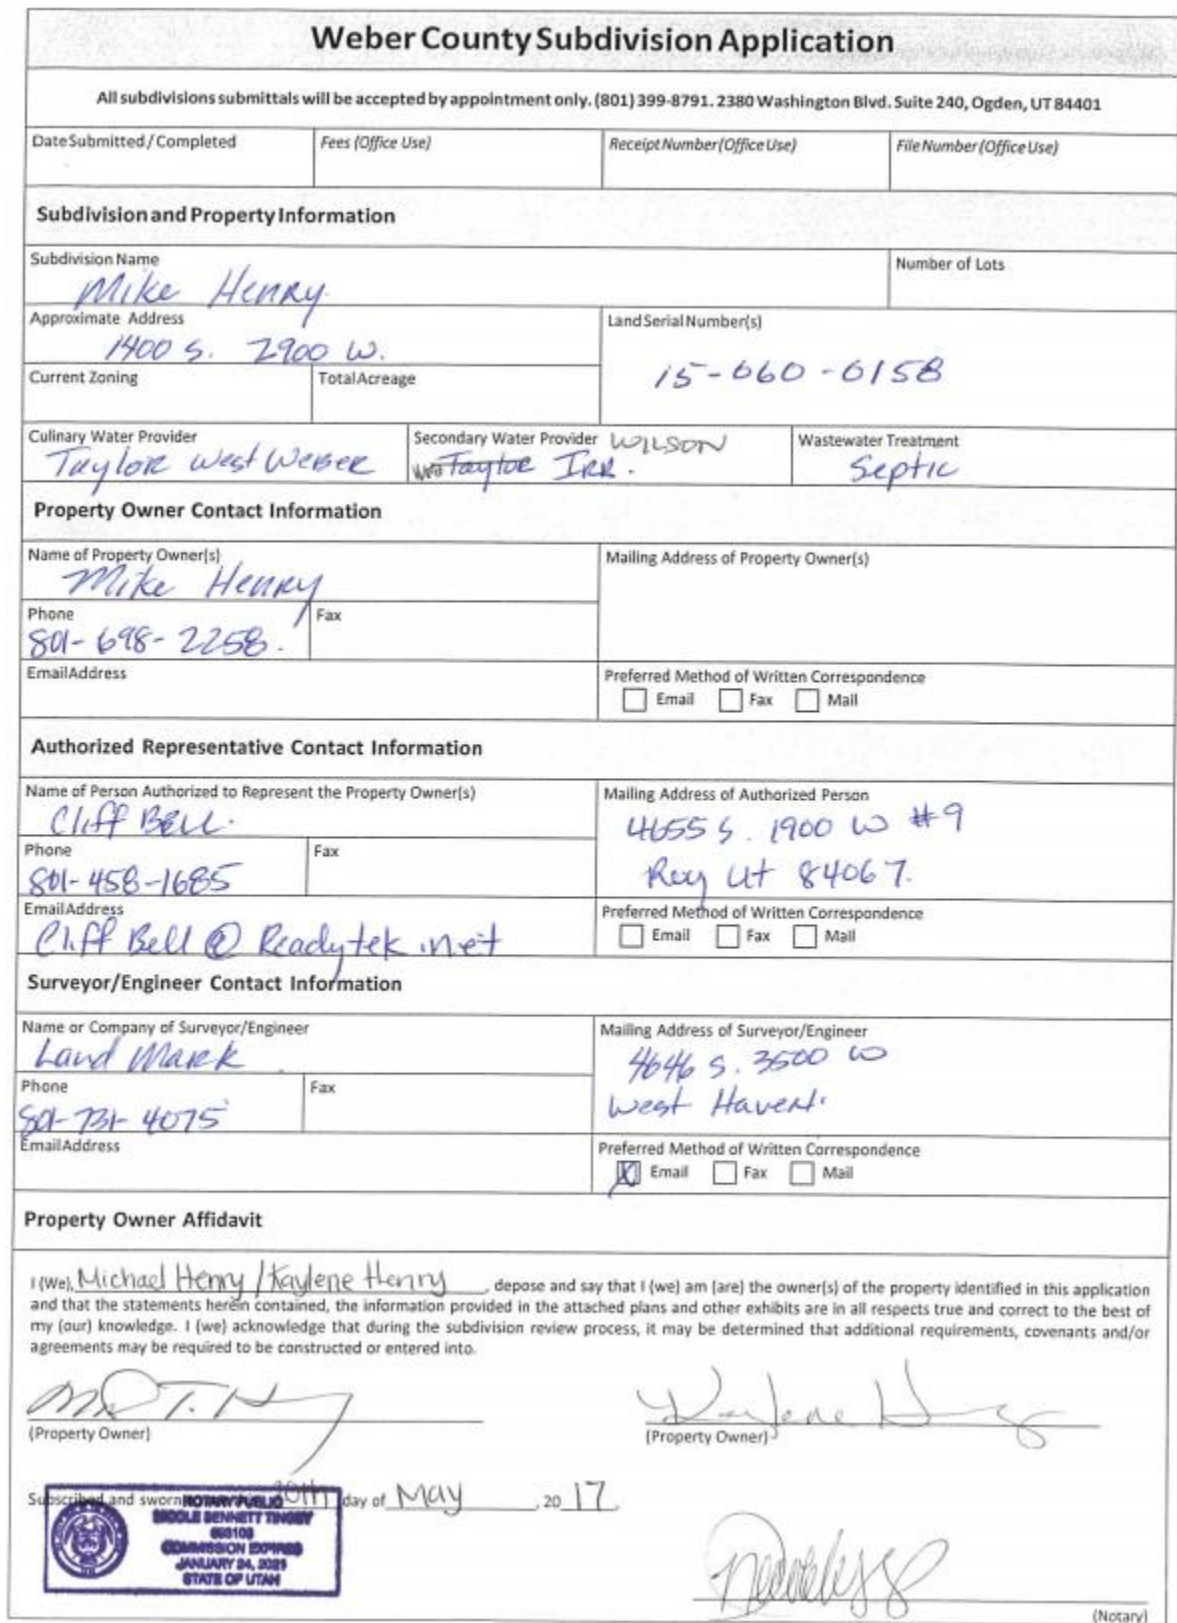 Weber County Subdivision Application
All subdivisions submittals will be accepted by appointment only. (801) 399-8791. 2380 Washington Blvd. Suite 240, Ogden, UT 84401
Date Submitted / Completed
Fees (Office Use)
Receipt Number (Office Use)
File Number (Office Use)
Subdivision and Property Information
Subdivision Name
Mike Henry
Number of Lots
Approximate Address
1400 S. 2900 W.
Land Serial Number(s)
15-060-0158
Current Zoning
Total Acreage
Culinary Water Provider
Taylor West Weber
Secondary Water Provider WILSON
Taylor Irr.
Wastewater Treatment
Septic
Property Owner Contact Information
Name of Property Owner(s)
Mike Henry
Mailing Address of Property Owner(s)
Phone
801-698-2258.
Fax
Email Address
Preferred Method of Written Correspondence
Email Fax Mail
Authorized Representative Contact Information
Name of Person Authorized to Represent the Property Owner(s)
Cliff Bell.
Mailing Address of Authorized Person
4655 S. 1900 W #9
Roy Ut 84067.
Phone
801-458-1685
Fax
Email Address
Cliff Bell @ Readytek.net
Preferred Method of Written Correspondence
Email Fax Mail
Surveyor/Engineer Contact Information
Name or Company of Surveyor/Engineer
Land Mark
Mailing Address of Surveyor/Engineer
4646 S. 3500 W
West Haven.
Phone
801-731-4075
Fax
Email Address
Preferred Method of Written Correspondence
Email Fax Mail
Property Owner Affidavit
I (We), Michael Henry / Kaylene Henry, depose and say that I (we) am (are) the owner(s) of the property identified in this application
and that the statements herein contained, the information provided in the attached plans and other exhibits are in all respects true and correct to the best of
my (our) knowledge. I (we) acknowledge that during the subdivision review process, it may be determined that additional requirements, covenants and/or
agreements may be required to be constructed or entered into.
(Property Owner)
Kaylene Henry
(Property Owner)
Subscribed and sworn 30th day of May, 20 17
NOTARY PUBLIC
BENNETT
COMMISSION EXPIRES
JANUARY 24, 2021
STATE OF UTAH
(Notary)